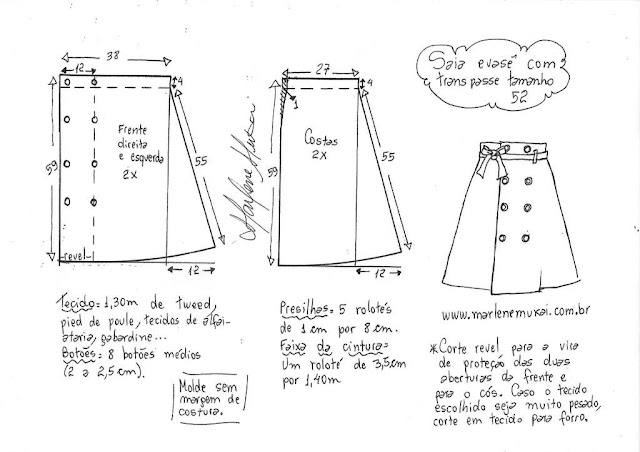 Saia evasê com
transpasse tamanho
52
38
12
4
59
Frente
direita
e esquerda
2x
55
revel
12
27
4
1
59
Costas
2x
55
12
Marlene Mukai
Tecido= 1,30m de tweed,
pied de poule, tecidos de alfai-
ataria, gabardine...
Botões= 8 botões médios
(2 a 2,5cm).
Molde sem
margem de
costura.
Presilhas= 5 rolotés
de 1cm por 8cm.
Faixa da cintura=
Um roloté de 3,5cm
por 1,40m
www.marlenemukai.com.br
*Corte revel para a vira
de proteção das duas
aberturas da frente e
para o cós. Caso o tecido
escolhido seja muito pesado,
corte em tecido para forro.